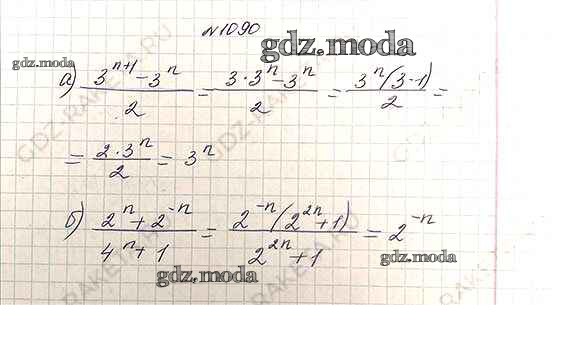 №1090
gdz.moda
gdz.moda
а) (3^(n+1) - 3^n)/2 = (3·3^n - 3^n)/2 = (3^n(3-1))/2 =
= (2·3^n)/2 = 3^n
б) (2^n + 2^(-n))/(4^n + 1) = (2^(-n)(2^(2n) + 1))/(2^(2n) + 1) = 2^(-n)
gdz.moda
gdz.moda
GDZ-RAKETA.RU
GDZ-RAKETA.RU